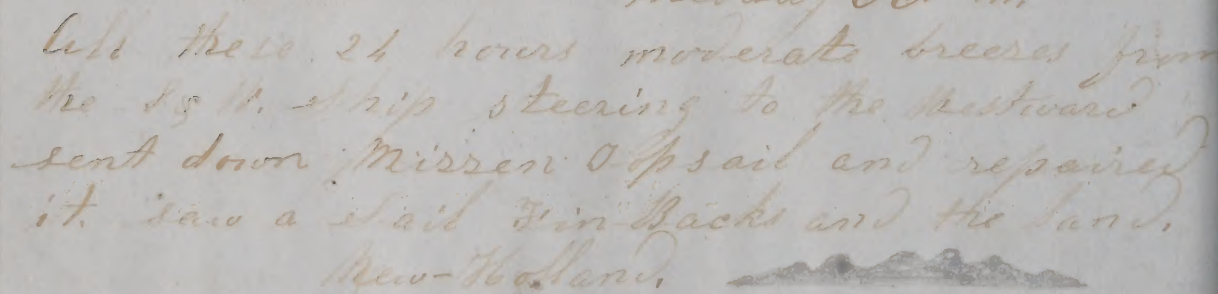 All these 24 hours moderate breezes from
the S & W. Ship steering to the Westward
sent down Mizzen Topsail and repaired
it. saw a Sail Fin-Backs and the land.
New-Holland.